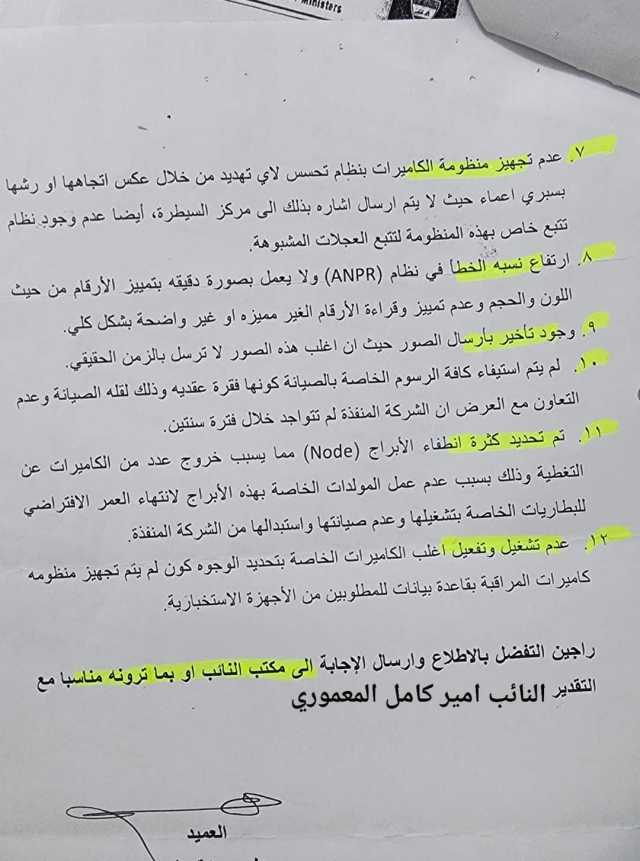 Ministers
٧. عدم تجهيز منظومة الكاميرات بنظام تحسس لاي تهديد من خلال عكس اتجاهها او رشها
بسبري اعماء حيث لا يتم ارسال اشاره بذلك الى مركز السيطرة، أيضا عدم وجود نظام
تتبع خاص بهذه المنظومة لتتبع العجلات المشبوهة.
٨. ارتفاع نسبه الخطأ في نظام (ANPR) ولا يعمل بصورة دقيقه بتمييز الأرقام من حيث
اللون والحجم وعدم تمييز وقراءة الأرقام الغير مميزه او غير واضحة بشكل كلي.
٩. وجود تأخير بأرسال الصور حيث ان اغلب هذه الصور لا ترسل بالزمن الحقيقي.
١٠. لم يتم استيفاء كافة الرسوم الخاصة بالصيانة كونها فقرة عقديه وذلك لقله الصيانة وعدم
التعاون مع العرض ان الشركة المنفذة لم تتواجد خلال فترة سنتين.
١١. تم تحديد كثرة انطفاء الأبراج (Node) مما يسبب خروج عدد من الكاميرات عن
التغطية وذلك بسبب عدم عمل المولدات الخاصة بهذه الأبراج لانتهاء العمر الافتراضي
للبطاريات الخاصة بتشغيلها وعدم صيانتها واستبدالها من الشركة المنفذة.
١٢. عدم تشغيل وتفعيل اغلب الكاميرات الخاصة بتحديد الوجوه كون لم يتم تجهيز منظومه
كاميرات المراقبة بقاعدة بيانات للمطلوبين من الأجهزة الاستخبارية.
راجين التفضل بالاطلاع وارسال الإجابة الى مكتب النائب او بما ترونه مناسبا مع
التقدير النائب امير كامل المعموري
العميد